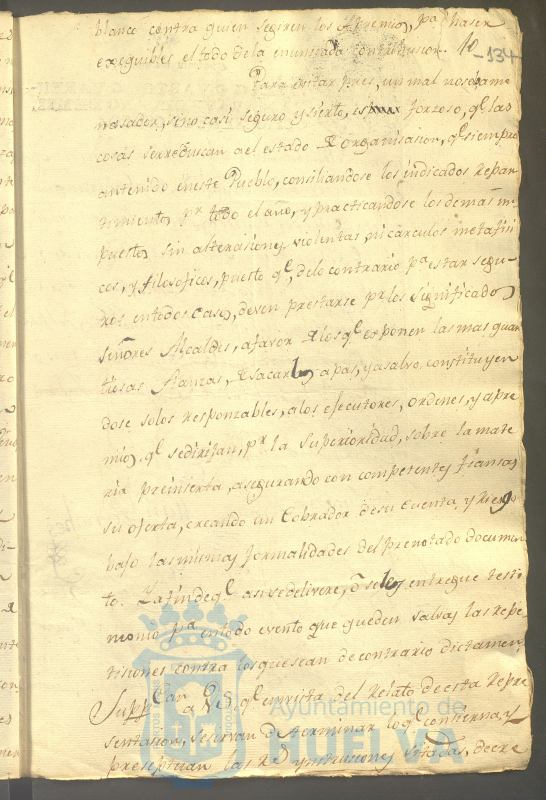 blanco contra quien segiren los Apremios, pa. haser
exeguibles el todo dela enunsiada Contribusion.
10-134
Para evitar pues, un mal no sog ame
nasador, sino casi seguro y sierto, es forzoso, ql. las
cosas se redusan a el estado de organisasion, ql. siempre
an tenido en este Pueblo, consiliandose los indicados Repar
timientos pr. todo el año, y practicandose los demas im
puestos sin alterasiones violentas, ni cárculos metafisi
cos, y filosoficos, puesto ql. delo contrario pa. estar segu
ros entodos casos, deven prestarse pr. los significados
Señores Alcaldes, afavor de los ql. exponen las mas quan
tiosas fianzas, de sacarlos apas, y asalvo, constituyen
dose solos responzables, alos ejecutores, ordenes, y apre
mios, ql. se dirijan, pr. la Superioridad, sobre la mate
ria preinserta, asegurando con competentes fiansas
su oferta, creando un Cobrador desu Cuenta, y Riesgo
bajo las mismas formalidades del prenotado documen
to. Y afin de ql. asi se delivere, ó se les entregue testi
monio pa. entodo evento que queden salvas las repe
tisiones contra los que sean de contrario dictamen
Suppcan a V.S. ql. en vista del Relato de esta Repre
sentasion, se sirvan determinar lo ql. consierna, y
preseptuan las Rs. Ynstrusiones sitadas, decre
Ayuntamiento de
HUELVA